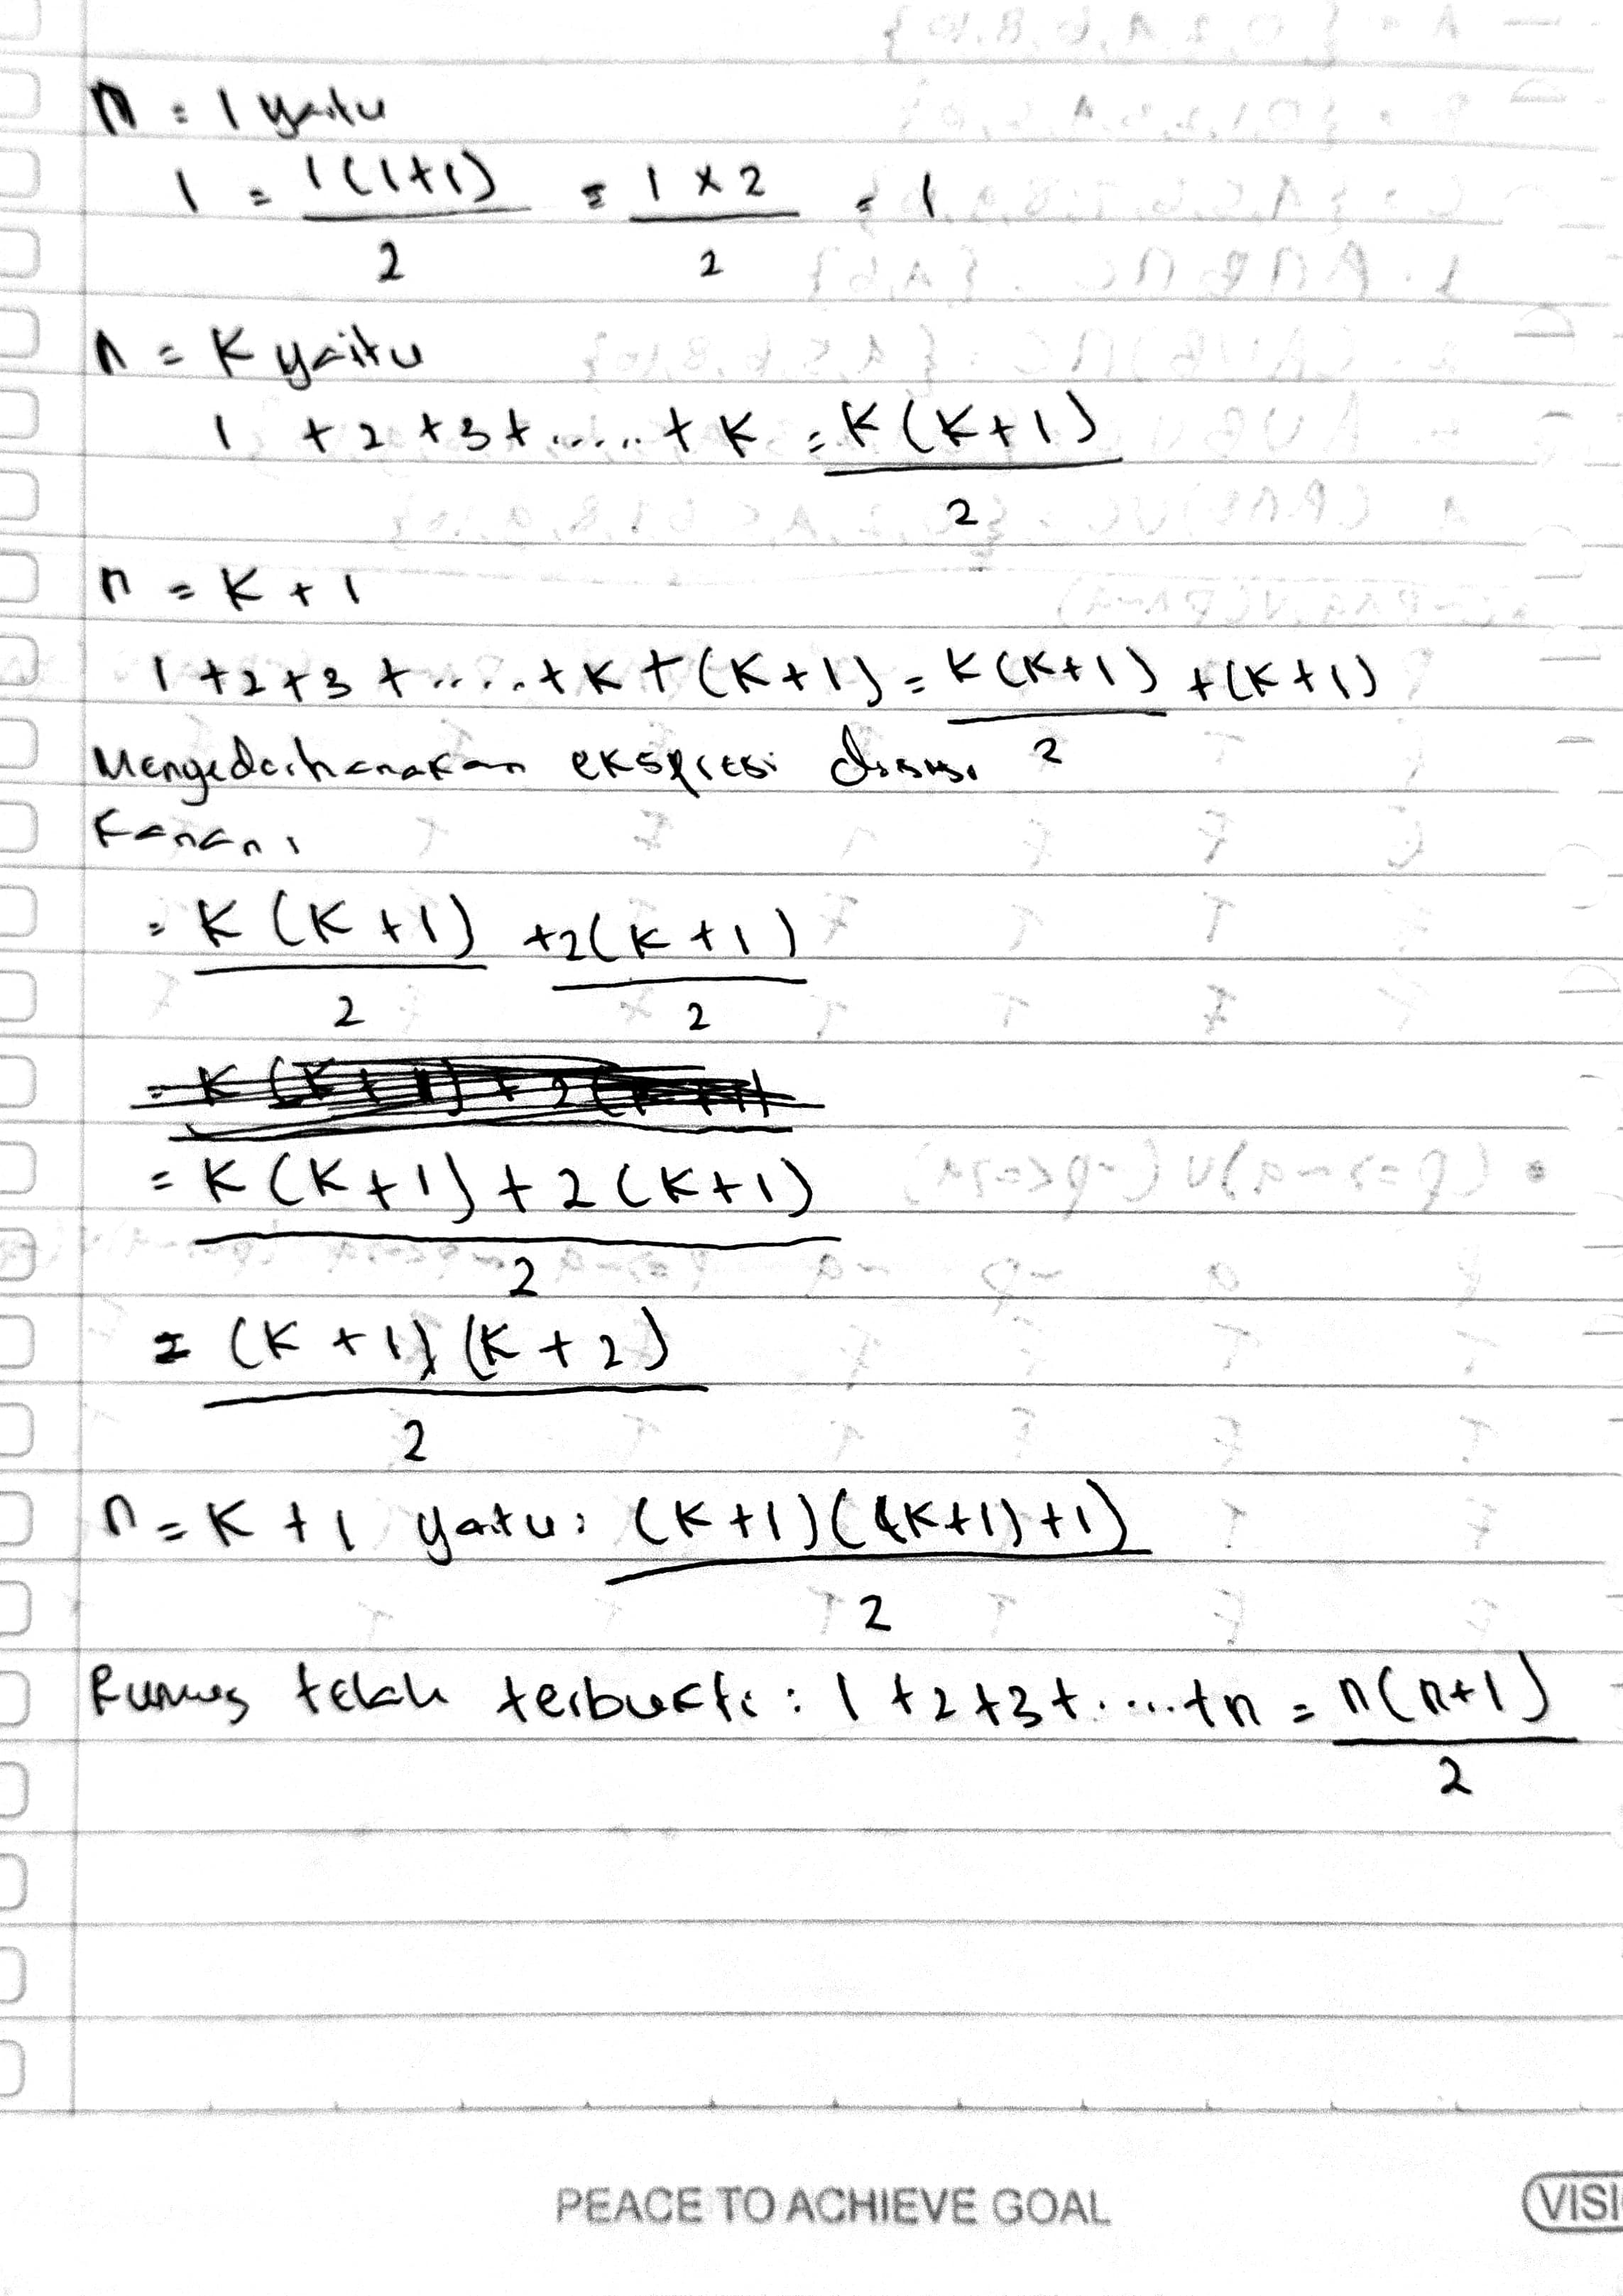 n = 1 yaitu
1 = 1(1+1)/2 = 1 × 2/2 = 1
n = K yaitu
1 + 2 + 3 + ..... + K = K(K+1)/2
n = K + 1
1 + 2 + 3 + ..... + K + (K+1) = K(K+1)/2 + (K+1)
Mengederhanakan ekspresi disisi
Kanan :
= K(K+1)/2 + 2(K+1)/2
= K(K+1) + 2(K+1)/2
= (K+1)(K+2)/2
n = K + 1 yaitu : (K+1)((K+1)+1)/2
Rumus telah terbukti : 1 + 2 + 3 + ..... + n = n(n+1)/2
PEACE TO ACHIEVE GOAL
VISI